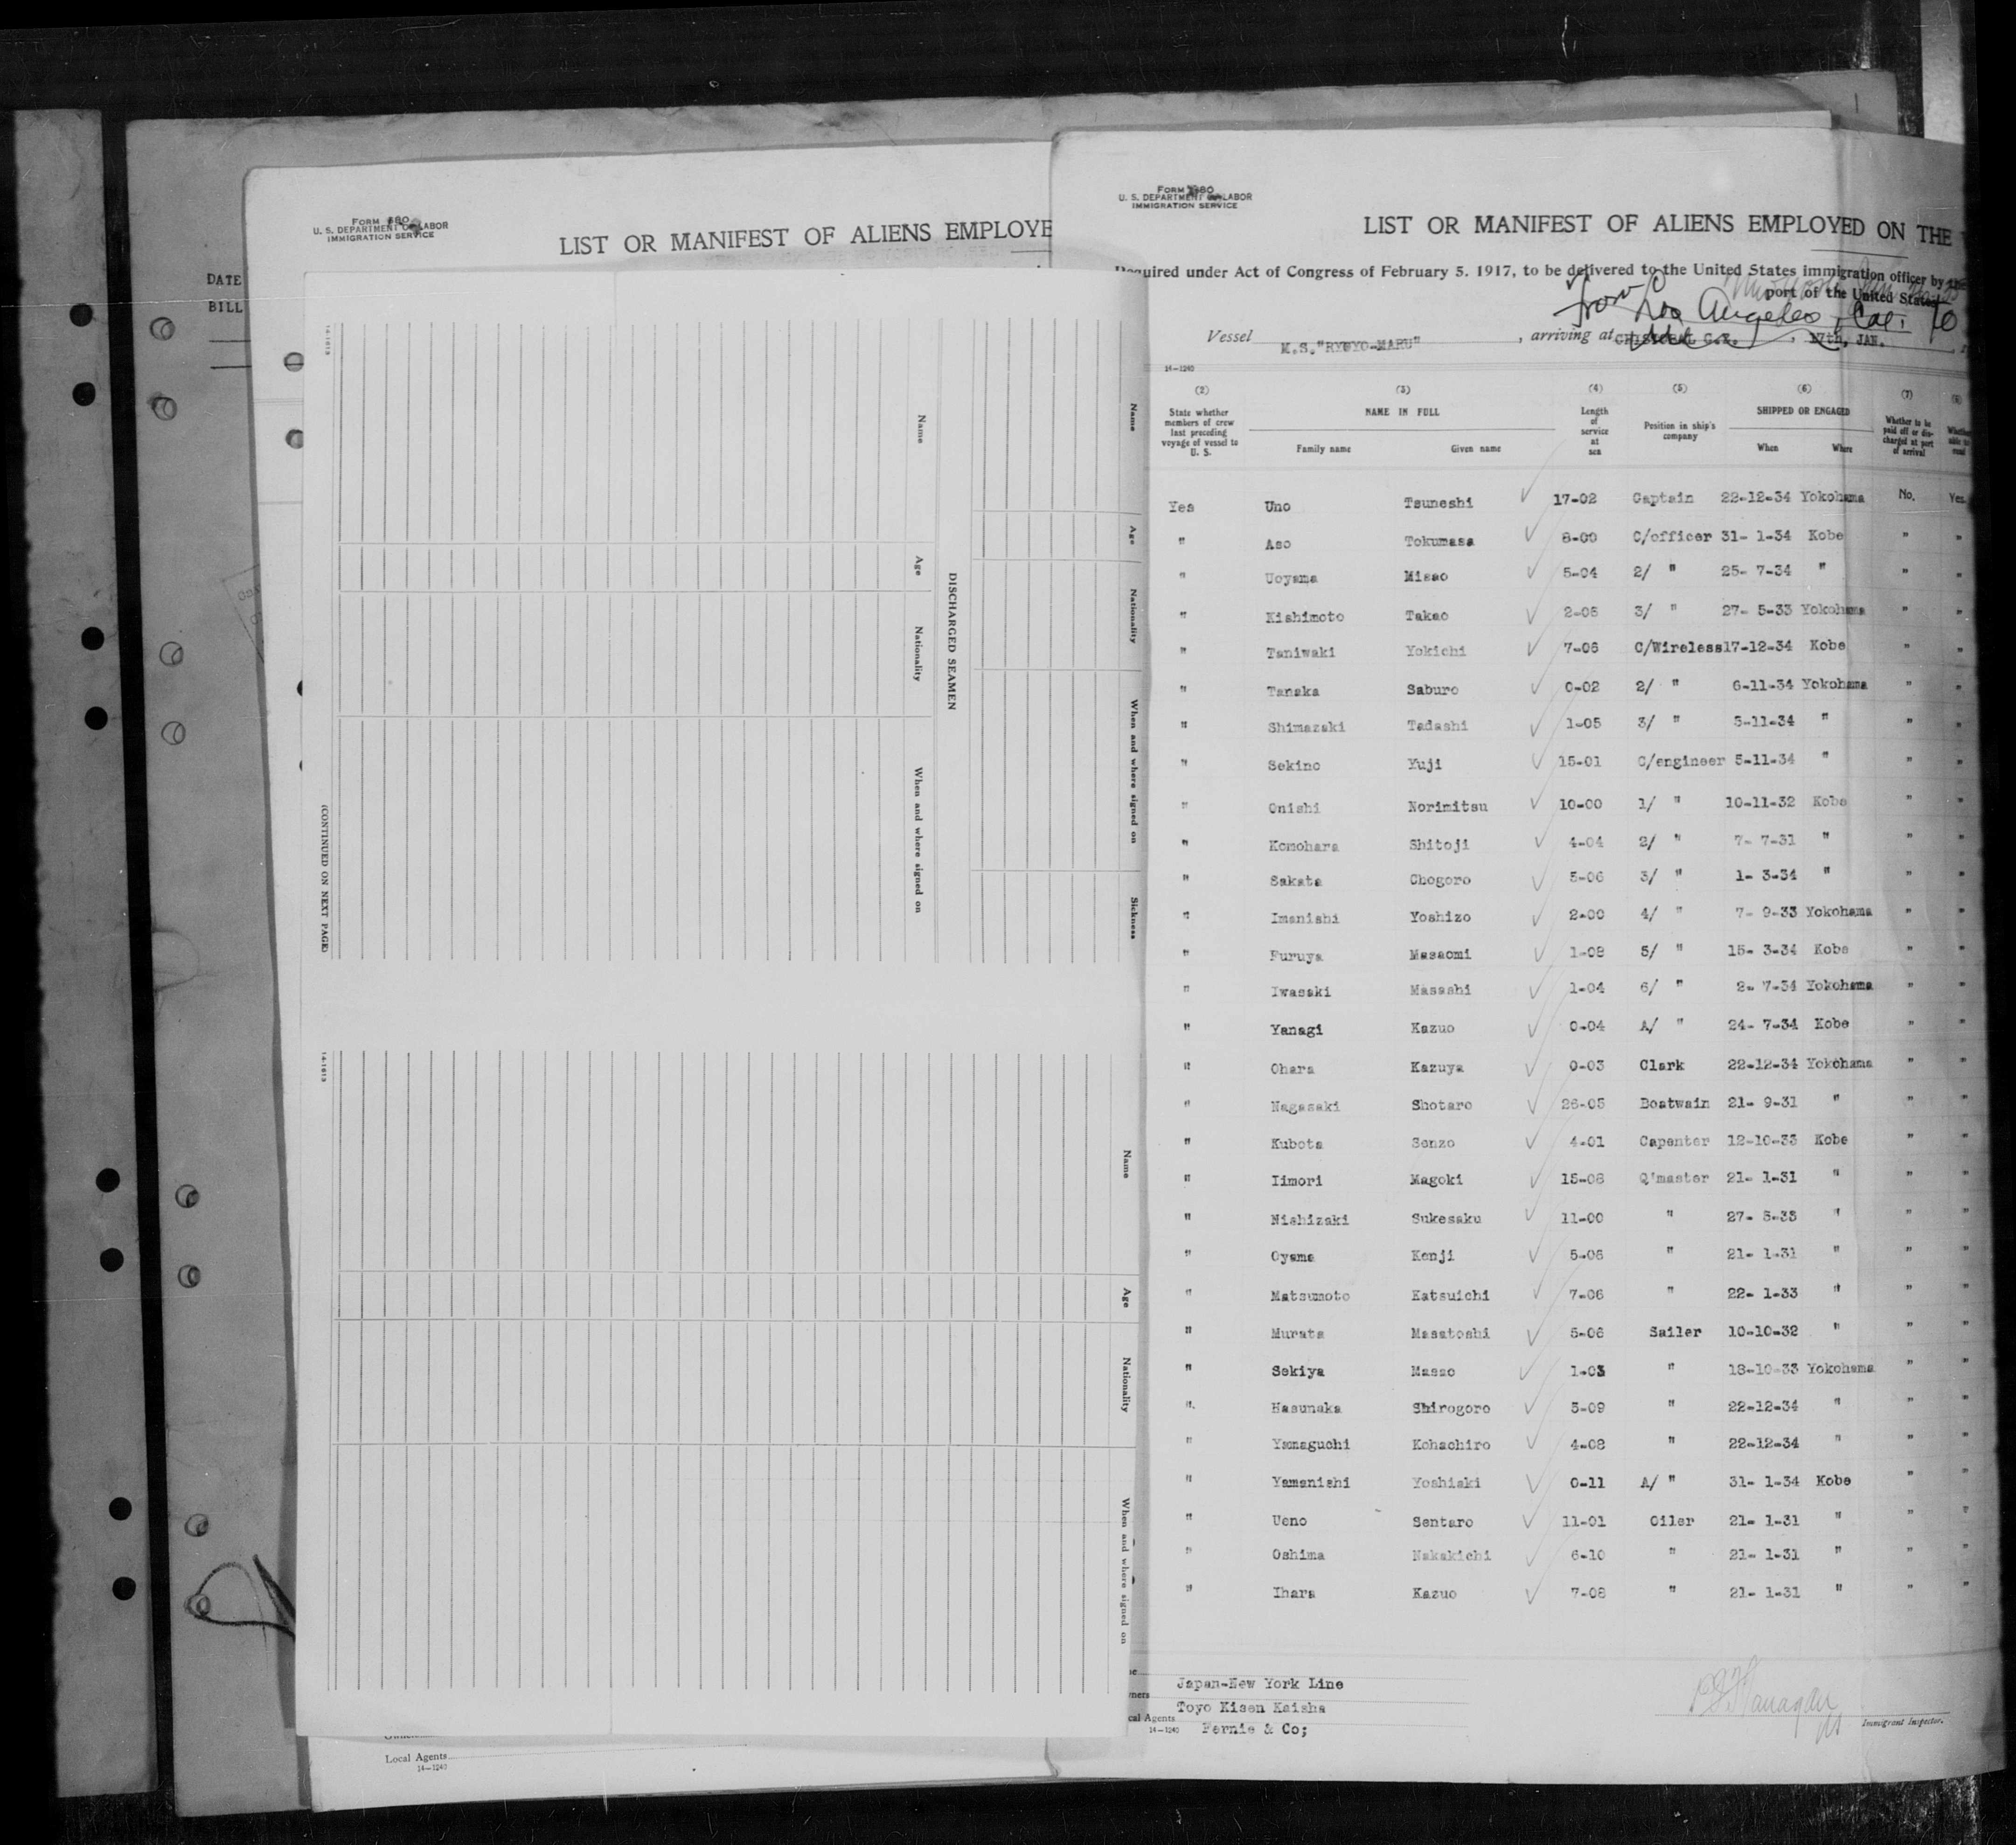 DATE
BILL
FORM 680
U. S. DEPARTMENT OF LABOR
IMMIGRATION SERVICE
LIST OR MANIFEST OF ALIENS EMPLOYE
14-1813
Name
Age
Nationality
When and where signed on
Sickness
DISCHARGED SEAMEN
Name
Age
Nationality
When and where signed on
(CONTINUED ON NEXT PAGE)
14-1813
Name
Age
Nationality
When and where signed on
Local Agents
14-1240
FORM 680
U. S. DEPARTMENT OF LABOR
IMMIGRATION SERVICE
LIST OR MANIFEST OF ALIENS EMPLOYED ON THE
Required under Act of Congress of February 5, 1917, to be delivered to the United States immigration officer by the
port of the United States
from Los Angeles, Cal. to
Vessel M.S."RYUYO-MARU", arriving at CRISTOBAL C.Z., 17th, JAN.
14-1240
(2) (3) (4) (5) (6) (7) (8)
State whether members of crew last preceding voyage of vessel to U. S. NAME IN FULL Length of service at sea Position in ship's company SHIPPED OR ENGAGED Whether to be paid off or discharged at port of arrival
Family name Given name When Where
Yes Uno Tsuneshi 17-02 Captain 22-12-34 Yokohama No. Yes.
" Aso Tokumasa 8-00 C/officer 31- 1-34 Kobe " "
" Uoyama Misao 5-04 2/ " 25- 7-34 " " "
" Kishimoto Takao 2-06 3/ " 27- 5-33 Yokohama " "
" Taniwaki Yokichi 7-06 C/Wireless 17-12-34 Kobe " "
" Tanaka Saburo 0-02 2/ " 6-11-34 Yokohama " "
" Shimazaki Tadashi 1-05 3/ " 5-11-34 " " "
" Sekino Yuji 15-01 C/engineer 5-11-34 " " "
" Onishi Norimitsu 10-00 1/ " 10-11-32 Kobe " "
" Komohara Shitoji 4-04 2/ " 7- 7-31 " " "
" Sakata Chogoro 5-06 3/ " 1- 3-34 " " "
" Imanishi Yoshizo 2-00 4/ " 7- 9-33 Yokohama " "
" Furuya Masaomi 1-08 5/ " 15- 3-34 Kobe " "
" Iwasaki Masashi 1-04 6/ " 2- 7-34 Yokohama " "
" Yanagi Kazuo 0-04 A/ " 24- 7-34 Kobe " "
" Ohara Kazuya 0-03 Clark 22-12-34 Yokohama " "
" Nagasaki Shotaro 26-05 Boatwain 21- 9-31 " " "
" Kubota Senzo 4-01 Capenter 12-10-33 Kobe " "
" Iimori Magoki 15-08 Q'master 21- 1-31 " " "
" Nishizaki Sukesaku 11-00 " 27- 5-33 " " "
" Oyama Kenji 5-06 " 21- 1-31 " " "
" Matsumoto Katsuichi 7-06 " 22- 1-33 " " "
" Murata Masatoshi 5-06 Sailer 10-10-32 " " "
" Sekiya Masao 1-03 " 18-10-33 Yokohama " "
" Hasunaka Shirogoro 5-09 " 22-12-34 " " "
" Yamaguchi Kohachiro 4-08 " 22-12-34 " " "
" Yamanishi Yoshiaki 0-11 A/ " 31- 1-34 Kobe " "
" Ueno Sentaro 11-01 Oiler 21- 1-31 " " "
" Oshima Nakakichi 6-10 " 21- 1-31 " " "
" Ihara Kazuo 7-08 " 21- 1-31 " " "
Japan-New York Line
Toyo Kisen Kaisha
cal Agents
14-1240 Fernie & Co;
Immigrant Inspector.